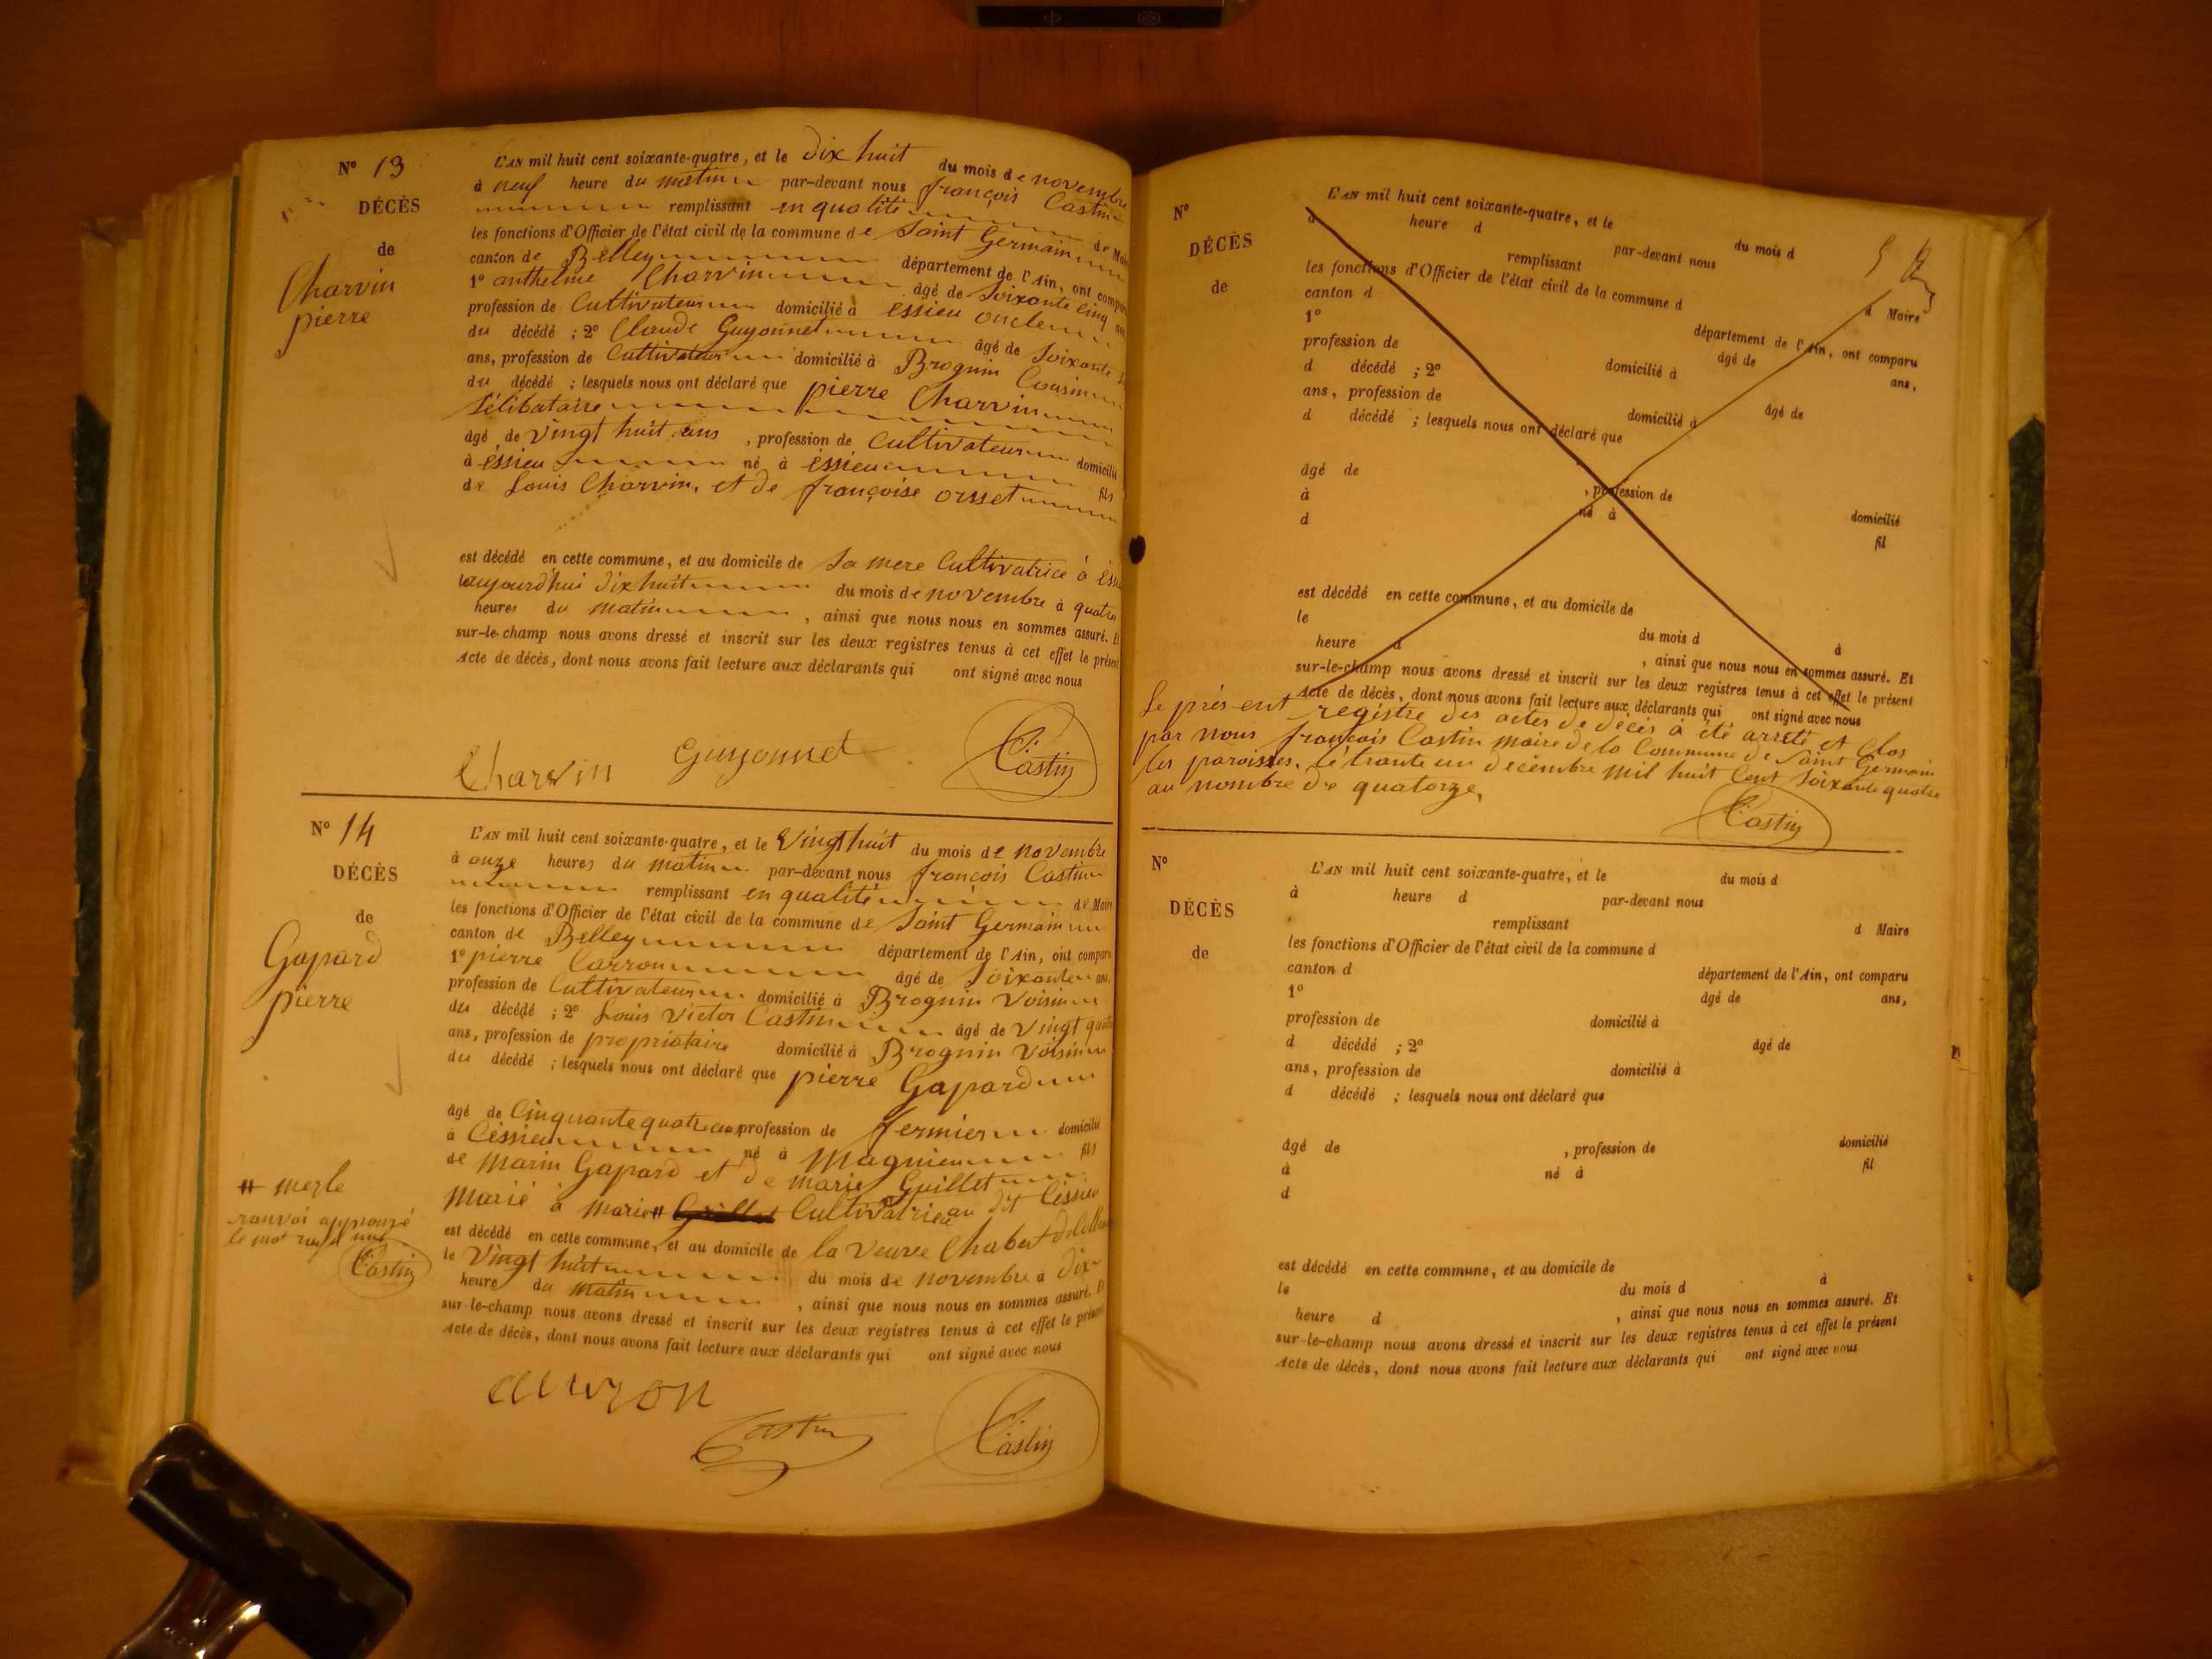 N° 13
DÉCÈS
de
Charvin
pierre
L'AN mil huit cent soixante-quatre, et le dix huit du mois de novembre
à neuf heure du matin par-devant nous françois Castin
remplissant en qualité de Maire
les fonctions d'Officier de l'état civil de la commune de Saint Germain
canton de Belley département de l'Ain, ont comparu
1° anthelme Charvin âgé de Soixante cinq ans
profession de Cultivateur domicilié à essieu oncle
du décédé ; 2° Claude Guyonnet âgé de Soixante
ans, profession de Cultivateur domicilié à Brognin Cousin
du décédé ; lesquels nous ont déclaré que pierre Charvin
Sélibataire
âgé de vingt huit ans , profession de Cultivateur domicilié
à éssieu né à éssieu fils
de Louis Charvin, et de françoise orsset
est décédé en cette commune, et au domicile de Sa mere Cultivatrice à
aujourd'hui dix huit du mois de novembre à quatre
heures du matin , ainsi que nous nous en sommes assuré. Et
sur-le-champ nous avons dressé et inscrit sur les deux registres tenus à cet effet le présent
Acte de décès, dont nous avons fait lecture aux déclarants qui ont signé avec nous
Charvin Guyonnet Castin
N° 14
DÉCÈS
de
Gapard
pierre
L'AN mil huit cent soixante-quatre, et le Vingt huit du mois de novembre
à onze heures du matin par-devant nous françois Castin
remplissant en qualité de Maire
les fonctions d'Officier de l'état civil de la commune de Saint Germain
canton de Belley département de l'Ain, ont comparu
1° pierre Carron âgé de Soixante ans,
profession de Cultivateur domicilié à Brognin Voisin
du décédé ; 2° Louis Victor Castin âgé de vingt quatre
ans, profession de propriétaire domicilié à Brognin Voisin
du décédé ; lesquels nous ont déclaré que pierre Gapard
âgé de Cinquante quatre ans profession de fermier domicilié
à Céssieu né à Magnieu fils
de Marin Gapard et de marie Guillet
Marié à Marie # Cultivatrice au dit Céssieu
# merle
ranvoi approuvé
le mot
Castin
est décédé en cette commune, et au domicile de la Veuve Chabert
le Vingt huit du mois de novembre à dix
heure du matin , ainsi que nous nous en sommes assuré. Et
sur-le-champ nous avons dressé et inscrit sur les deux registres tenus à cet effet le présent
Acte de décès, dont nous avons fait lecture aux déclarants qui ont signé avec nous
Castin Castin
N°
DÉCÈS
de
L'AN mil huit cent soixante-quatre, et le du mois d
à heure d par-devant nous
remplissant d Maire
les fonctions d'Officier de l'état civil de la commune d
canton d département de l'Ain, ont comparu
1° âgé de ans,
profession de domicilié à
d décédé ; 2° âgé de
ans, profession de domicilié à
d décédé ; lesquels nous ont déclaré que
âgé de , profession de domicilié
à né à fil
d
est décédé en cette commune, et au domicile de
le du mois d à
heure d , ainsi que nous nous en sommes assuré. Et
sur-le-champ nous avons dressé et inscrit sur les deux registres tenus à cet effet le présent
Acte de décès, dont nous avons fait lecture aux déclarants qui ont signé avec nous
Le présent registre des actes de décès à été arrêté et Clos
par nous françois Castin maire de la Commune de Saint Germain
les paroisses, le trante un decembre mil huit Cent Soixante quatre
au nombre de quatorze,
Castin
N°
DÉCÈS
de
L'AN mil huit cent soixante-quatre, et le du mois d
à heure d par-devant nous
remplissant d Maire
les fonctions d'Officier de l'état civil de la commune d
canton d département de l'Ain, ont comparu
1° âgé de ans,
profession de domicilié à
d décédé ; 2° âgé de
ans, profession de domicilié à
d décédé ; lesquels nous ont déclaré que
âgé de , profession de domicilié
à né à fil
d
est décédé en cette commune, et au domicile de
le du mois d à
heure d , ainsi que nous nous en sommes assuré. Et
sur-le-champ nous avons dressé et inscrit sur les deux registres tenus à cet effet le présent
Acte de décès, dont nous avons fait lecture aux déclarants qui ont signé avec nous